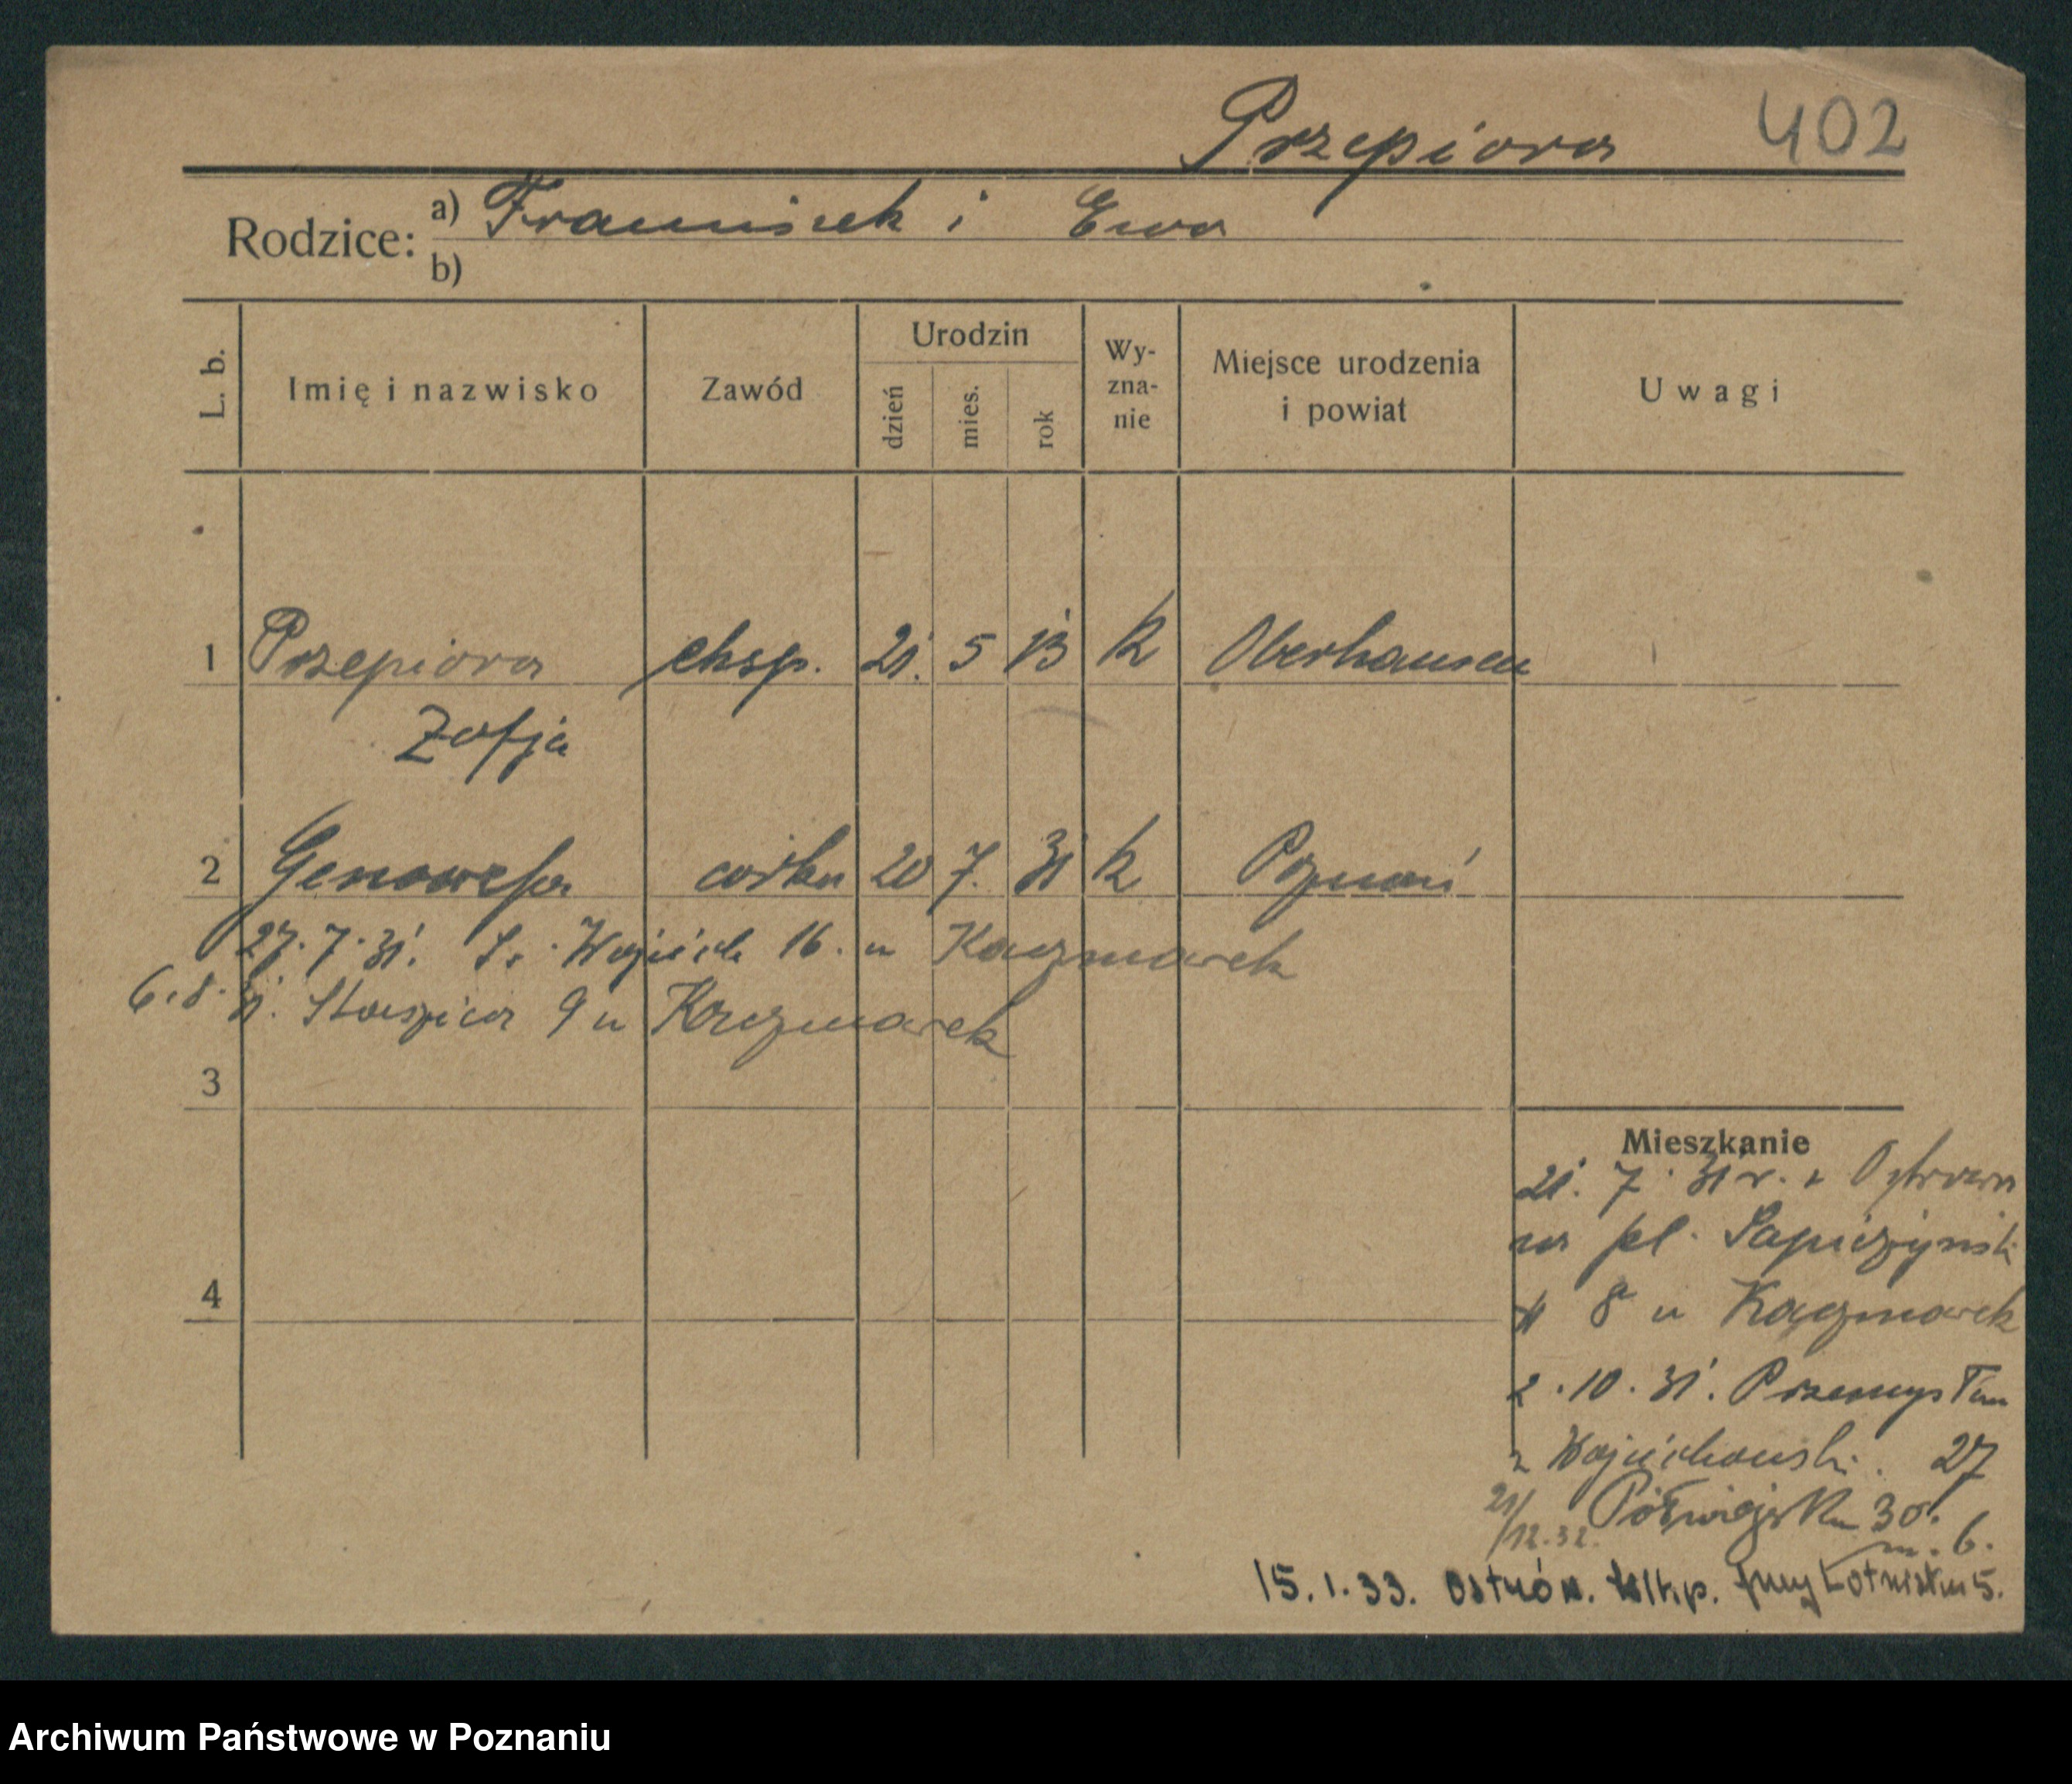 Przepiora 402
Rodzice: a) Franciszek i Ewa
b)
L. b. Imię i nazwisko Zawód Urodzin dzień mies. rok Wy-zna-nie Miejsce urodzenia i powiat Uwagi
1 Przepiora eksp. 21. 5 13 k Oberhausen
Zofja
2 Genowefa córka 20 7. 31 k Poznań
27. 7. 31. Św. Wojciech 16. u Kaczmarek
6. 8. 31. Staszica 9 u Kaczmarek
3
Mieszkanie
21. 7. 31 r. z Ostrowa
na pl. Sapieżyński
8 u Kaczmarek
4
2. 10. 31. Przemysław
z Wojciechowski. 27
21/12.32. Półwiejska 30.
m. 6.
15. 1. 33. Ostrów. Wlkp. przy Lotnisku 5.
Archiwum Państwowe w Poznaniu